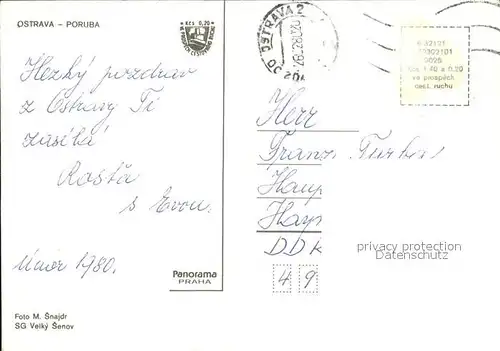 OSTRAVA – PORUBA
Kčs 0,20
Hezký pozdrav
z Ostravy Ti
zasílá
Rosťa
s Evou.
Únor 1980.
Panorama
PRAHA
Foto M. Šnajdr
SG Velký Šenov
OSTRAVA 2
ve prospěch
cest. ruchu
Herr
Franz
Haup
Hayn
DDR
4 9
privacy protection
Watermark